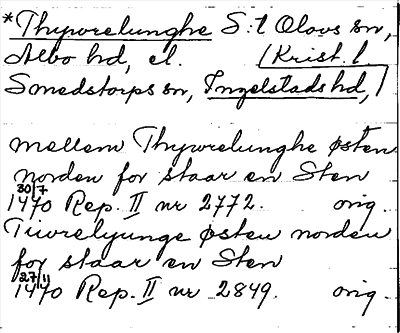 *Thywrelunghe S:t Olovs sn,
Albo hd, el. (Krist.)
Smedstorps sn, Ingelstads hd,
mellem Thywrelunghe østen
norden for staar en Sten
30/7
1470 Rep. II nr 2772. orig.
Tiwrelyunge østen norden
for staar en Sten
27/11
1470 Rep. II nr 2849. orig.